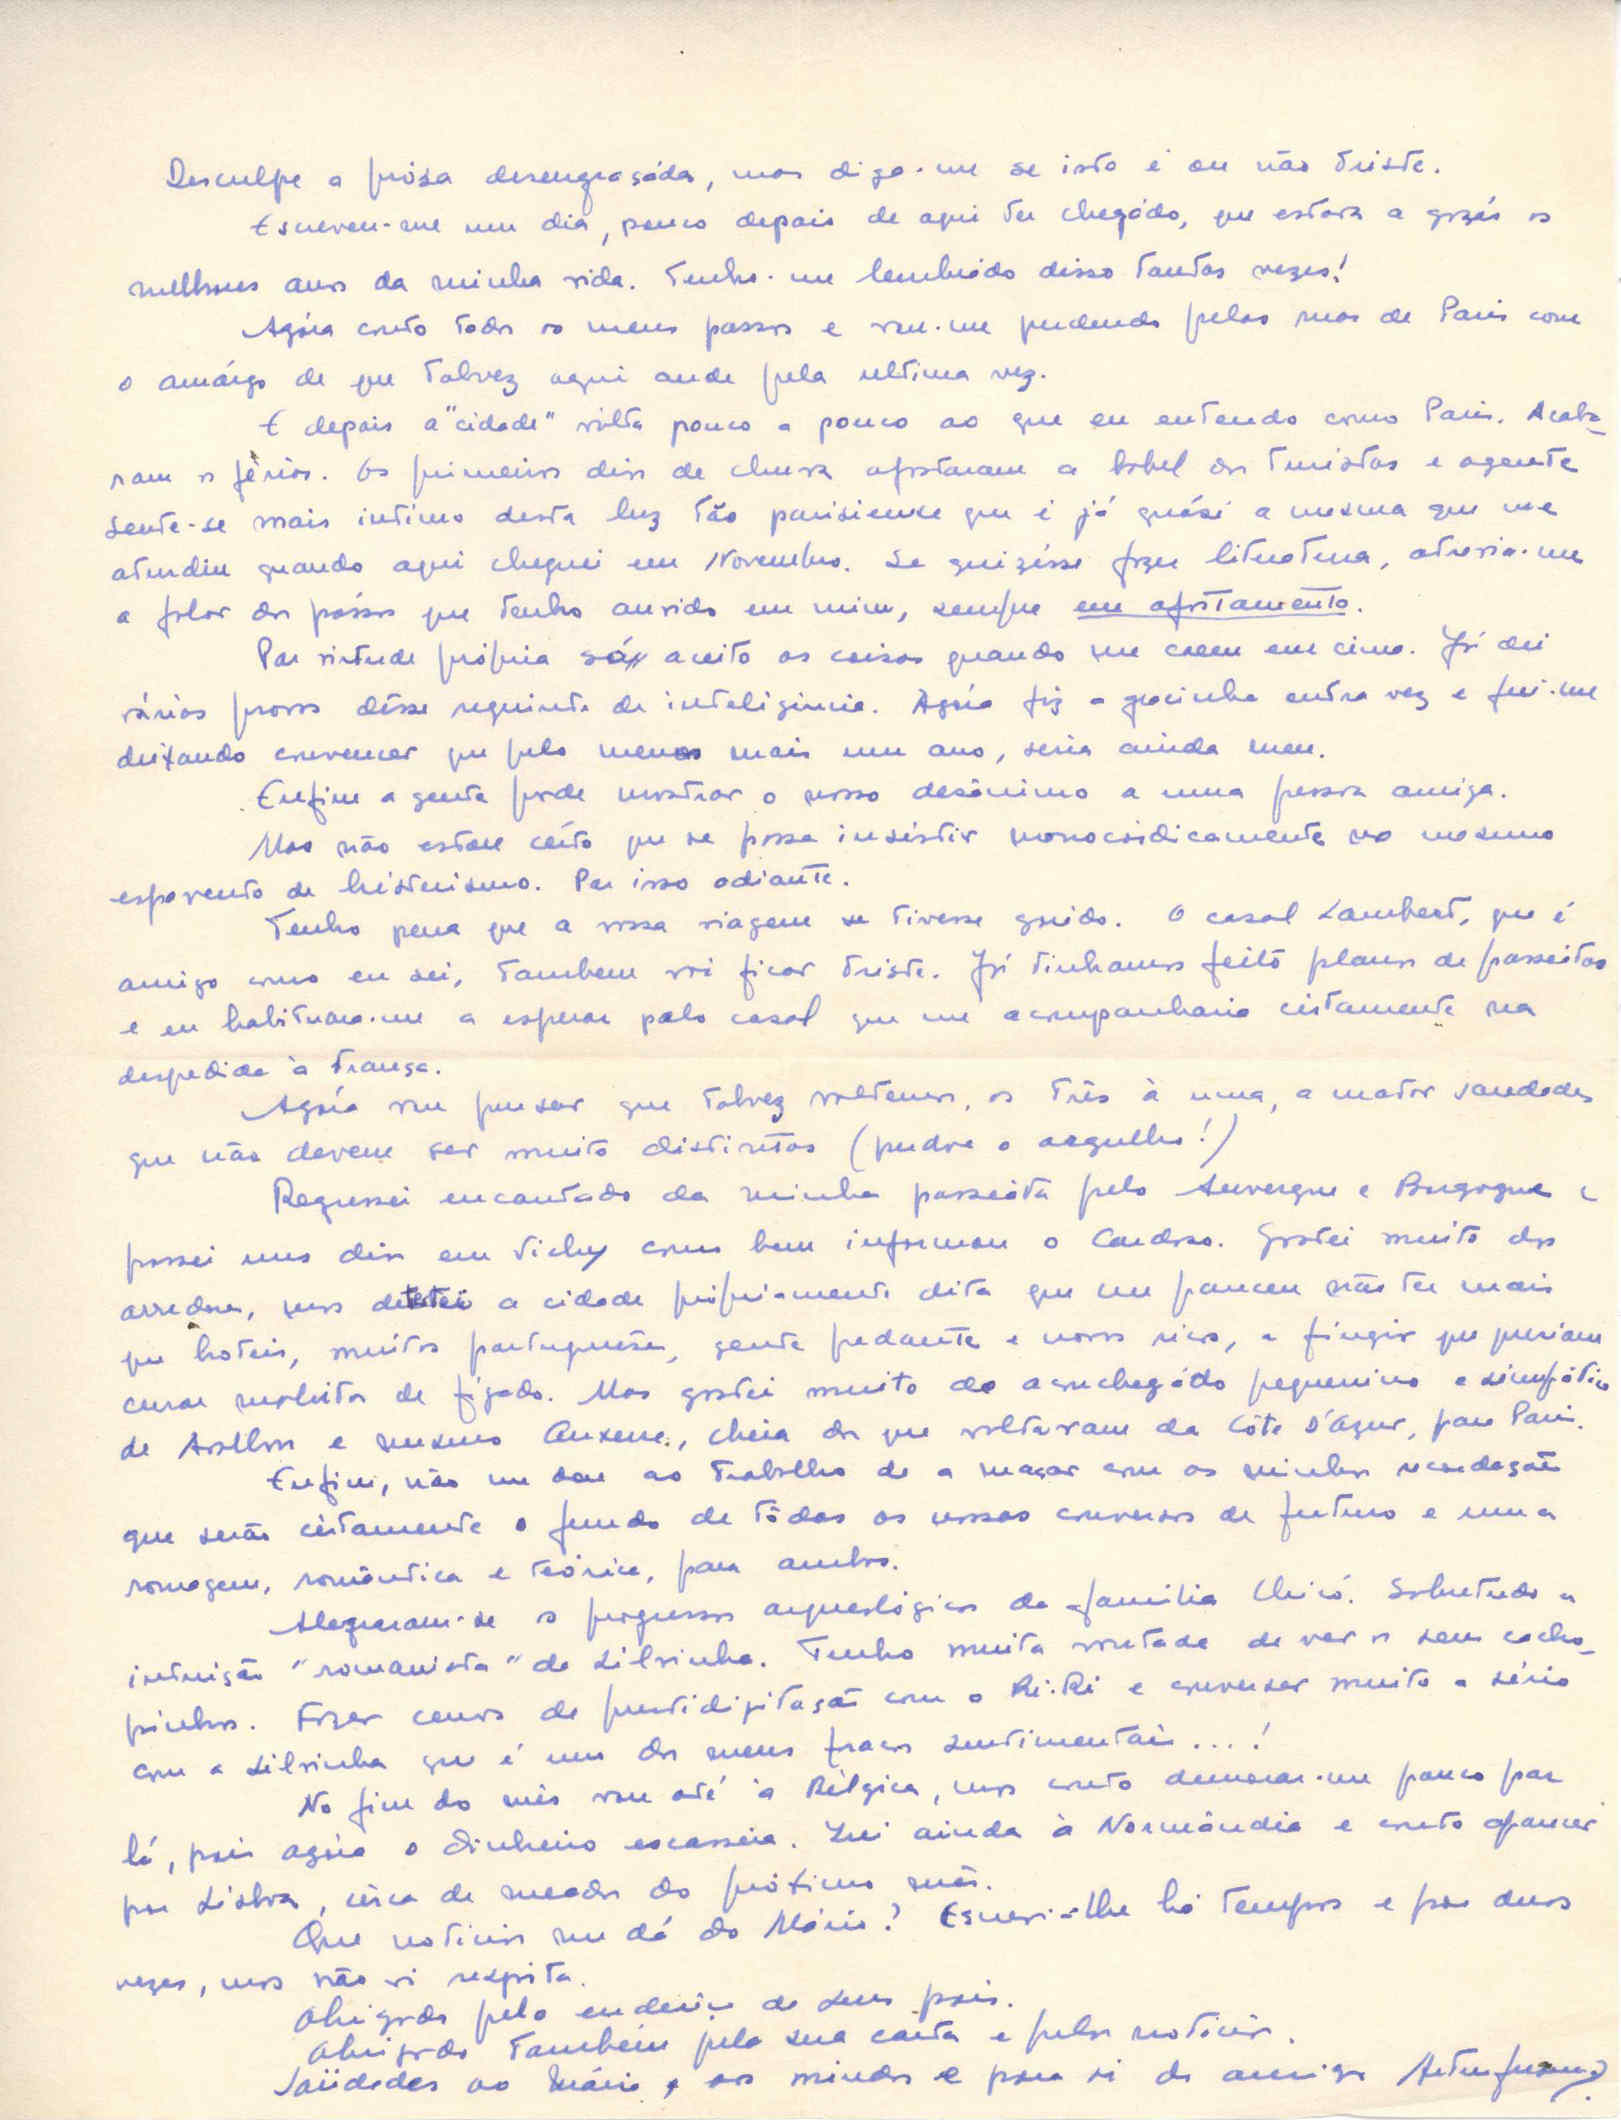 Desculpe a prósa desengraçáda, mas diga-me se isto é ou não triste.
Escreveu-me um dia, pouco depois de aqui ter chegádo, que estava a gozár os
melhores anos da minha vida. Tenho-me lembrádo disso tantas vezes!
Agóra conto todos os meus passos e vou-me perdendo pelas ruas de Paris com
o amárgo de que talvez aqui ande pela ultima vez.
E depois a "cidade" volta pouco a pouco ao que eu entendo como Paris. Acaba-
ram as férias. Os primeiros dias de chuva afastaram a babel dos turistas e agente
sente-se mais intimo desta luz tão parisiense que é já quási a mesma que me
aturdiu quando aqui cheguei em Novembro. Se quizésse fazer literatura, atrevia-me
a falar dos pássos que tenho ouvido em mim, sempre em afastamento.
Por virtude própria só aceito as coisas quando me caem em cima. Já dei
várias provas dêsse requinte de inteligência. Agóra fiz a gracinha outra vez e fui-me
deixando convencer que pelo menos mais um ano, seria ainda meu.
Enfim a gente pode mostrar o nosso desânimo a uma pessoa amiga.
Mas não estou cérto que se possa insistir monocórdicamente no mesmo
espavento de histerismo. Por isso adiante.
Tenho pena que a vossa viagem se tivesse gorido. O casal Lambert, que é
amigo como eu sei, tambem vai ficar triste. Já tinhamos feito planos de passeitas
e eu habituara-me a esperar pelo casal que me acompanharia cértamente na
despedida à França.
Agóra vou pensar que talvez voltemos, os três à uma, a matar saudades
que não devem ser muito distintas (perdoe o orgulho!)
Regressei encantado da minha passeáta pelo Auvergne e Bourgogne e
passei uns dias em Vichy como bem informou o Cardoso. Gostei muito dos
arredores, mas detestei a cidade própriamente dita que me pareceu não ter mais
que hoteis, muitos portugueses, gente pedante e novos ricos, a fingir que queriam
curar moléstias de fígado. Mas gostei muito do aconchegádo pequenino e simpático
de Avallon e mesmo Auxerre, cheia dos que voltavam da Côte d'Azur, para Paris.
Enfim, não me dou ao trabalho de a maçar com as minhas recordações
que serão cértamente o fundo de tôdas as nossas conversas de futuro e uma
romagem, romântica e teórica, para ambos.
Alegraram-se os progressos arqueológicos da familia Chicó. Sobretudo a
intuição "romanista" da Silvinha. Tenho muita vontade de ver os seus cacho-
pinhos. Fazer cenas de prestidigitação com o Ri-Ri e conversar muito a sério
com a Silvinha que é um dos meus fracos sentimentais...!
No fim do mês vou até à Bélgica, mas conto demorar-me pouco por
lá, pois agóra o dinheiro escasseia. Irei ainda à Normândia e conto aparecer
por Lisboa, cêrca de meados do próximo mês.
Que noticias me dá do Mário? Escrevi-lhe há tempos e por duas
vezes, mas não vi resposta.
Obrigado pelo enderêço de seus pais.
Obrigado também pela sua carta e pelas noticias.
Saüdades ao Mário, aos miudos e para si do amigo